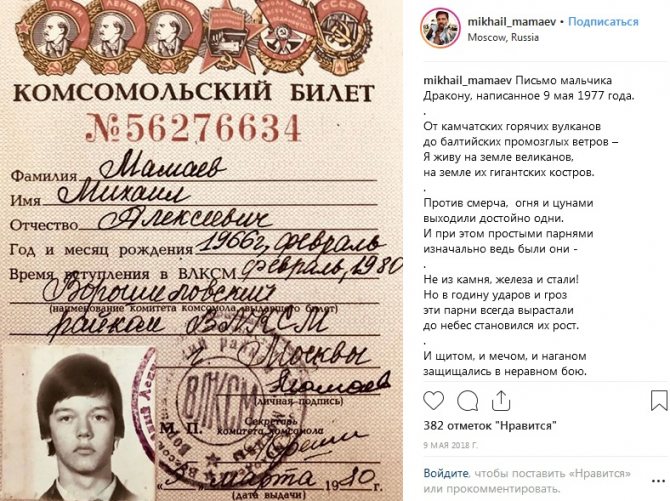 КОМСОМОЛЬСКИЙ БИЛЕТ
№56276634
Фамилия Мамаев
Имя Михаил
Отчество Алексеевич
Год и месяц рождения 1966г, февраль
Время вступления в ВЛКСМ февраль, 1980
Ворошиловский
(наименование комитета комсомола, выдавшего билет)
райком ВЛКСМ
г. Москвы
(личная подпись)
М. П. Секретарь
комитета комсомола
марта 1980 г.
(дата выдачи)
ВЛКСМ
mikhail_mamaev • Подписаться
Moscow, Russia
mikhail_mamaev Письмо мальчика
Дракону, написанное 9 мая 1977 года.
.
От камчатских горячих вулканов
до балтийских промозглых ветров –
Я живу на земле великанов,
на земле их гигантских костров.
.
Против смерча, огня и цунами
выходили достойно одни.
И при этом простыми парнями
изначально ведь были они -
.
Не из камня, железа и стали!
Но в годину ударов и гроз
эти парни всегда вырастали
до небес становился их рост.
.
И щитом, и мечом, и наганом
защищались в неравном бою.
382 отметок "Нравится"
9 МАЯ 2018 Г.
Войдите, чтобы поставить «Нравится»
или прокомментировать.